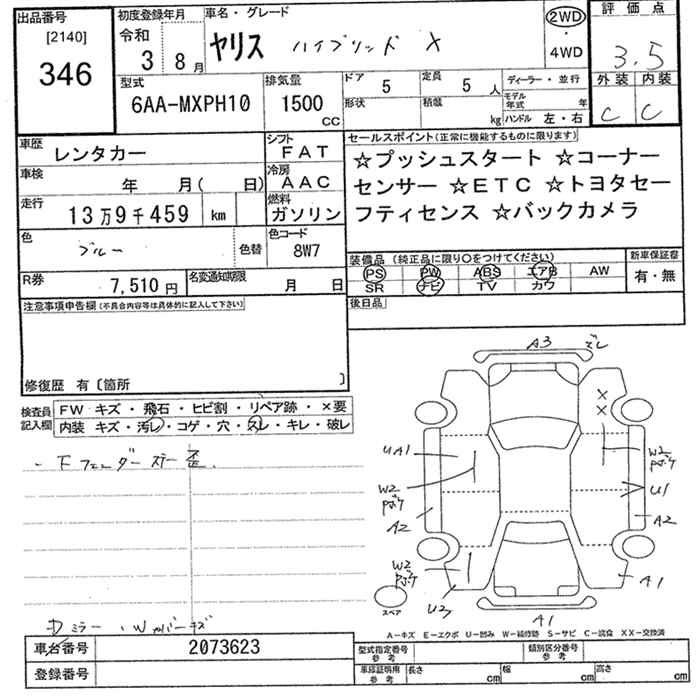 出品番号
[2140]
346
初度登録年月
令和
3 8月
車名・グレード
ヤリス ハイブリッド X
2WD
・
4WD
評価点
3.5
外装 内装
C C
型式
6AA-MXPH10
排気量
1500
CC
ドア
5
定員
5 人
形状
積載
kg
ディーラー・並行
モデル
年式 年
ハンドル 左・右
車歴
レンタカー
シフト
FAT
車検
年 月( 日)
冷房
AAC
走行
13万9千459 km
燃料
ガソリン
色
ブルー
色替
色コード
8W7
R券
7,510円
名変通知期限
月 日
セールスポイント(正常に機能するものに限ります)
☆プッシュスタート ☆コーナー
センサー ☆ETC ☆トヨタセー
フティセンス ☆バックカメラ
装備品 (純正品に限り○をつけてください)
PS PW ABS エアB AW
SR ナビ TV カワ
新車保証書
有・無
後日品
注意事項申告欄(不具合内容等は具体的に記入して下さい)
修復歴 有〔箇所 〕
検査員
記入欄
FW キズ・飛石・ヒビ割・リペア跡・×要
内装 キズ・汚レ・コゲ・穴・スレ・キレ・破レ
・Fフェンダーステー歪
Dミラー・Wカバーキズ
A3 ズレ
×
×
UA1
W2
Pボケ
A2
W2
Pボケ
U1
A2
W2
Pボケ
U2
A1
A1
スペア
A-キズ E-エクボ U-凹み W-補修跡 S-サビ C-腐食 XX-交換済
車台番号
2073623
登録番号
型式指定番号
参考
類別区分番号
参考
車庫証明用
参考
長さ cm
幅 cm
高さ cm